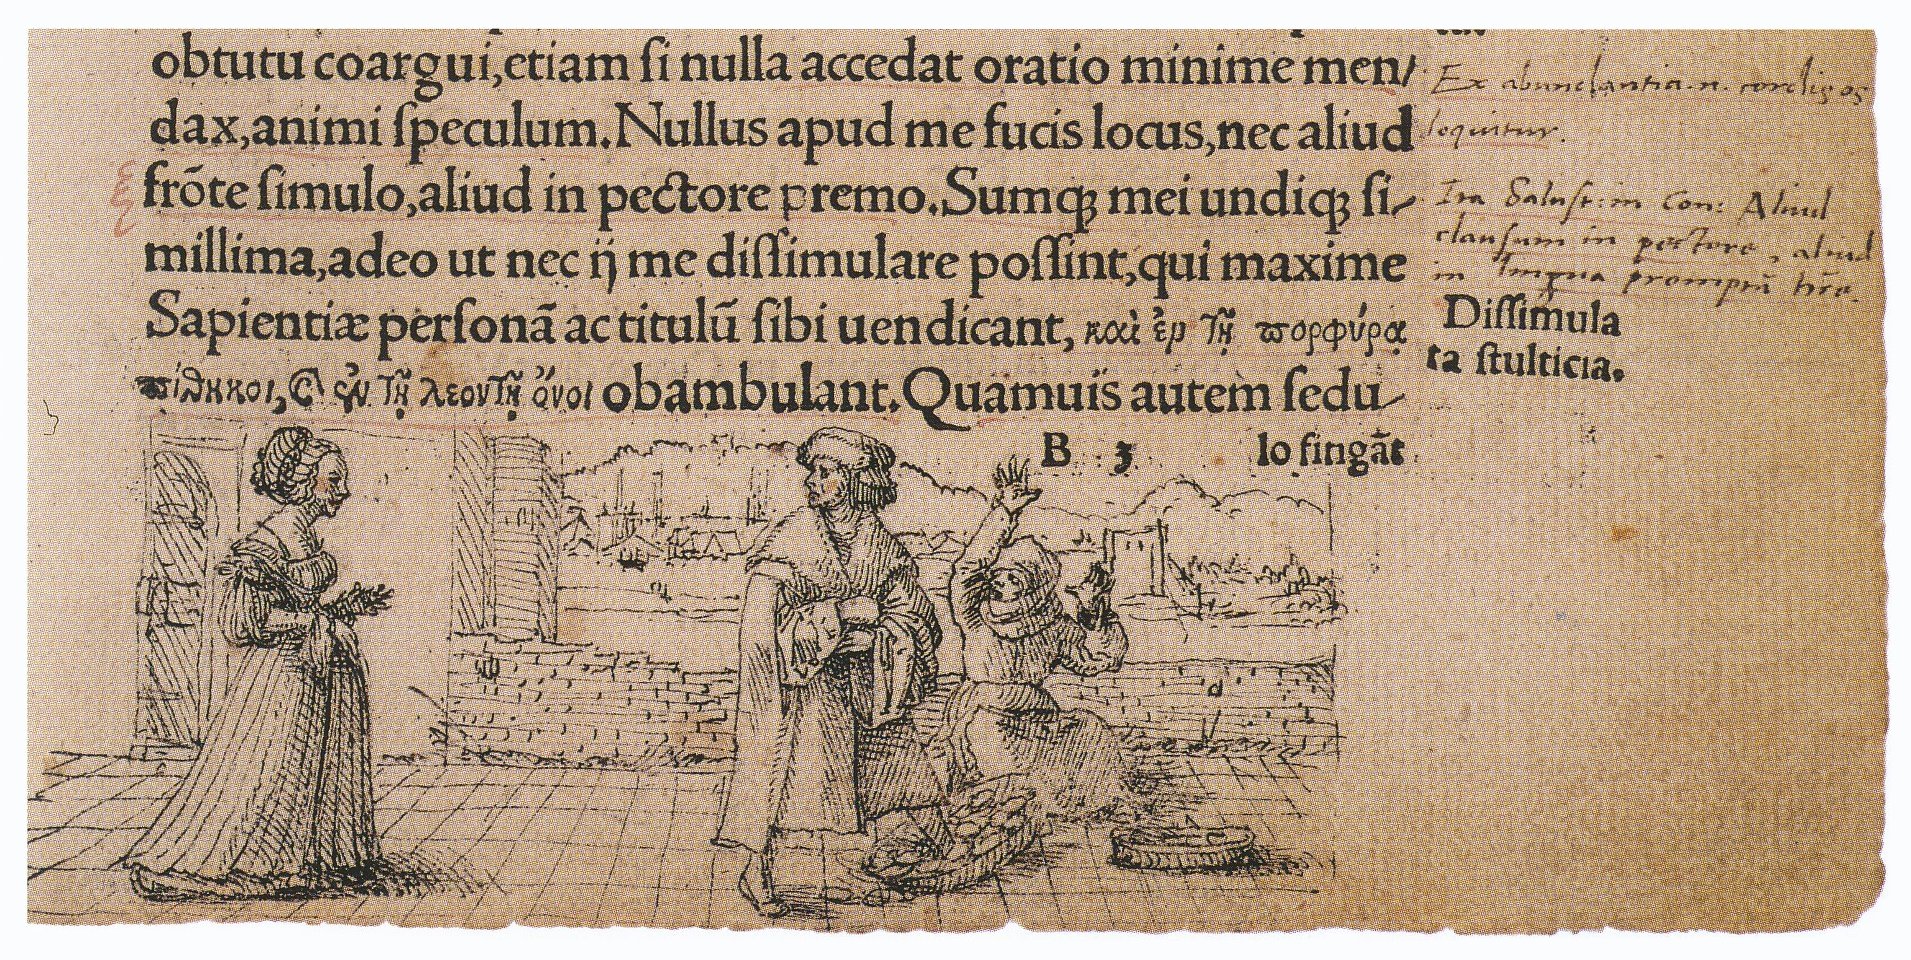 obtutu coargui,etiam ſi nulla accedat oratio minime men/
dax,animi ſpeculum.Nullus apud me fucis locus,nec aliud
frōte ſimulo,aliud in pectore premo.Sumqꝫ mei undiqꝫ ſi-
millima,adeo ut nec ij me diſſimulare poſſint,qui maxime
Sapientiæ perſonā ac titulū ſibi uendicant, καὶ ἐν τῇ πορφύρᾳ
πίθηκοι, & ἐν τῇ λεοντῇ ὄνοι obambulant.Quamuis autem ſedu-
B 3 lo fingāt
Ex abundantia.n. cordis os
loquitur.
Ita Saluſt: in Con: Aliud
clauſum in pectore, aliud
in lingua promptū
Diſſimula
ta ſtulticia.